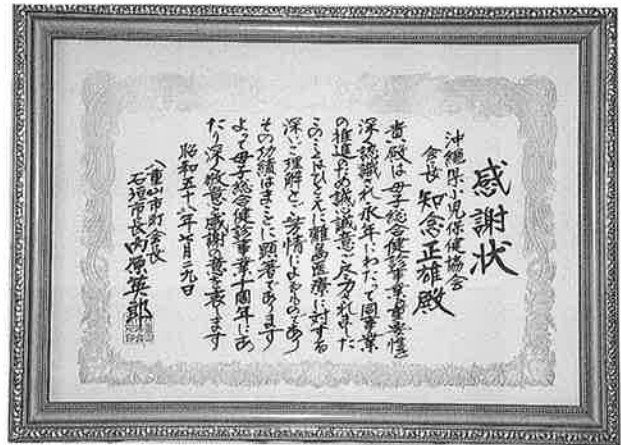 感謝状
沖縄県小児保健協会
会長 知念正雄殿
貴殿は母子総合健診事業の重要性を
深く認識され永年にわたって同事業
の推進のため誠心誠意ご尽力されました
このことはひとえに離島医療に対する
深いご理解とご芳情によるものであり
その功績はまことに顕著であります
よって母子総合健診事業十周年にあ
たり深く敬意と感謝の意を表します
昭和五十八年七月二九日
八重山市町会長
石垣市長 内原英郎